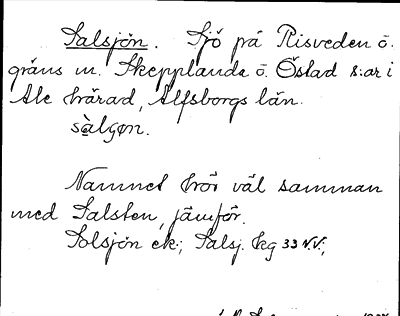 Salsjön. Sjö på Risveden ö.
gräns m. Skepplanda ö. Östad s:ar i
Ale härad, Älfsborgs län.
sàlʃøn.
Namnet hör väl samman
med Salsten, jämför.
Solsjön ek; Salsj. hg 33 N.V.;